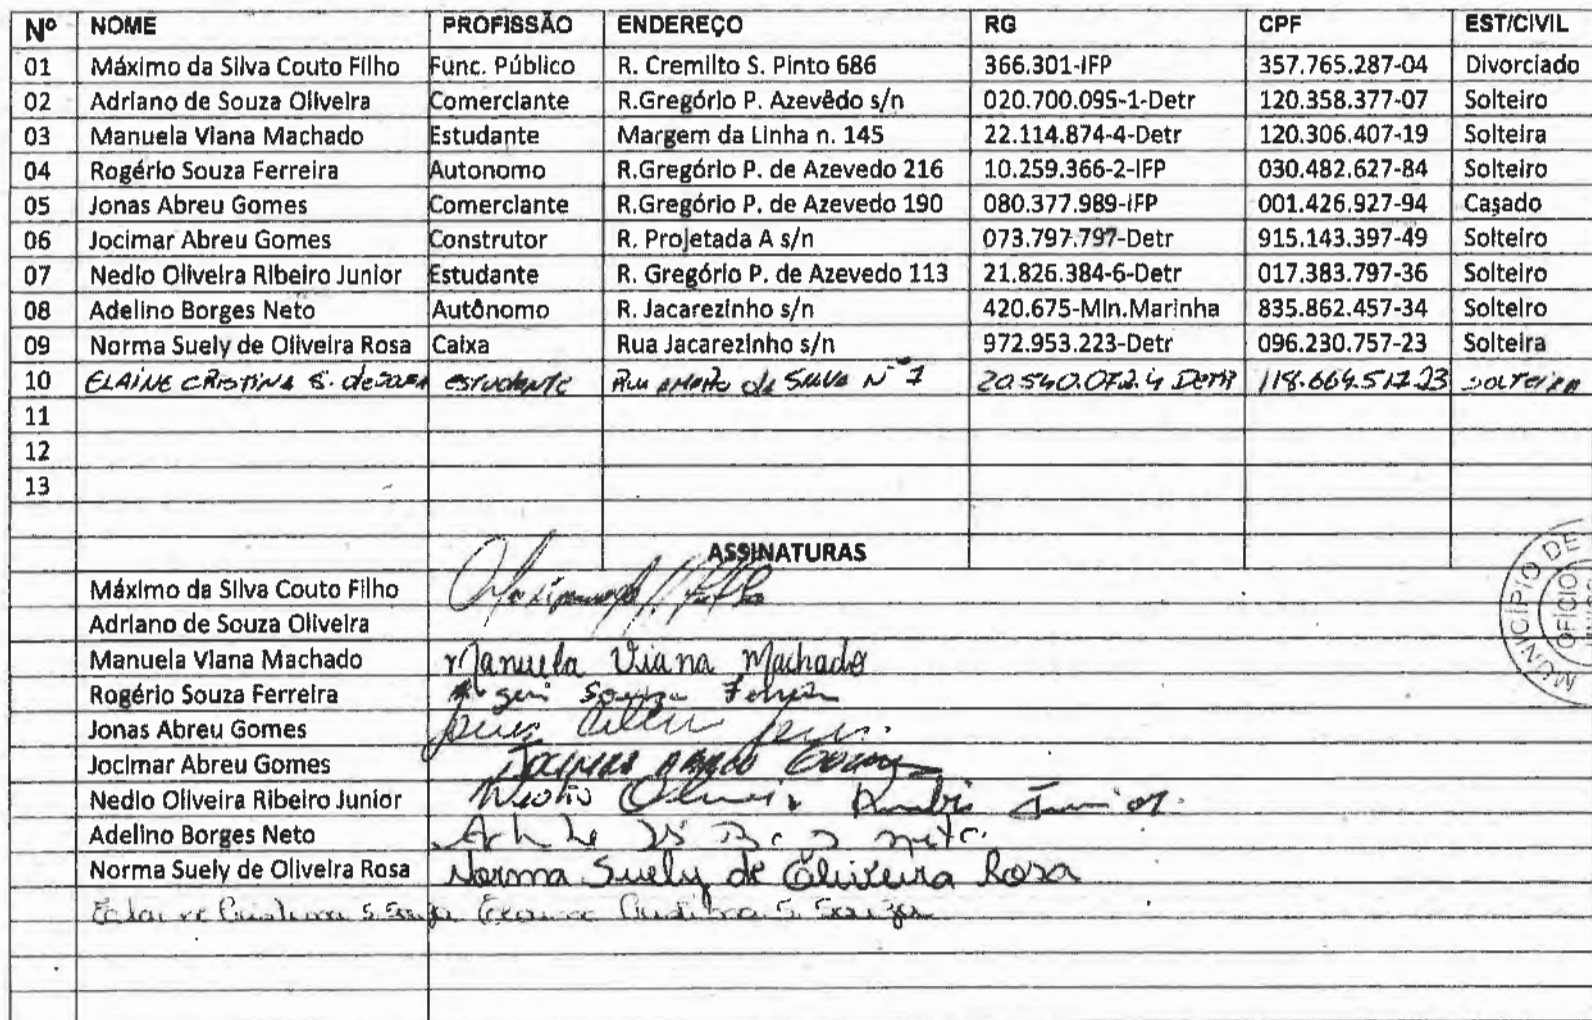 Nº NOME PROFISSÃO ENDEREÇO RG CPF EST/CIVIL
01 Máximo da Silva Couto Filho Func. Público R. Cremilto S. Pinto 686 366.301-IFP 357.765.287-04 Divorciado
02 Adriano de Souza Oliveira Comerciante R.Gregório P. Azevêdo s/n 020.700.095-1-Detr 120.358.377-07 Solteiro
03 Manuela Viana Machado Estudante Margem da Linha n. 145 22.114.874-4-Detr 120.306.407-19 Solteira
04 Rogério Souza Ferreira Autonomo R.Gregório P. de Azevedo 216 10.259.366-2-IFP 030.482.627-84 Solteiro
05 Jonas Abreu Gomes Comerciante R.Gregório P. de Azevedo 190 080.377.989-IFP 001.426.927-94 Casado
06 Jocimar Abreu Gomes Construtor R. Projetada A s/n 073.797.797-Detr 915.143.397-49 Solteiro
07 Nedio Oliveira Ribeiro Junior Estudante R. Gregório P. de Azevedo 113 21.826.384-6-Detr 017.383.797-36 Solteiro
08 Adelino Borges Neto Autônomo R. Jacarezinho s/n 420.675-Min.Marinha 835.862.457-34 Solteiro
09 Norma Suely de Oliveira Rosa Caixa Rua Jacarezinho s/n 972.953.223-Detr 096.230.757-23 Solteira
10 ELAINE CRISTINA S. de Souza estudante Rua da Silva Nº 7 20.540.072.4 Detr 118.664.517.23 solteira
11
12
13
ASSINATURAS
Máximo da Silva Couto Filho
Adriano de Souza Oliveira
Manuela Viana Machado Manuela Viana Machado
Rogério Souza Ferreira Rogerio Souza Ferreira
Jonas Abreu Gomes
Jocimar Abreu Gomes JOCIMAR ABREU GOMES
Nedio Oliveira Ribeiro Junior Nedio Oliveira Ribeiro Junior
Adelino Borges Neto Neto
Norma Suely de Oliveira Rosa Norma Suely de Oliveira Rosa
Elaine Cristina S. Souza Elaine Cristina S. Souza
MUNICÍPIO DE
OFÍCIO